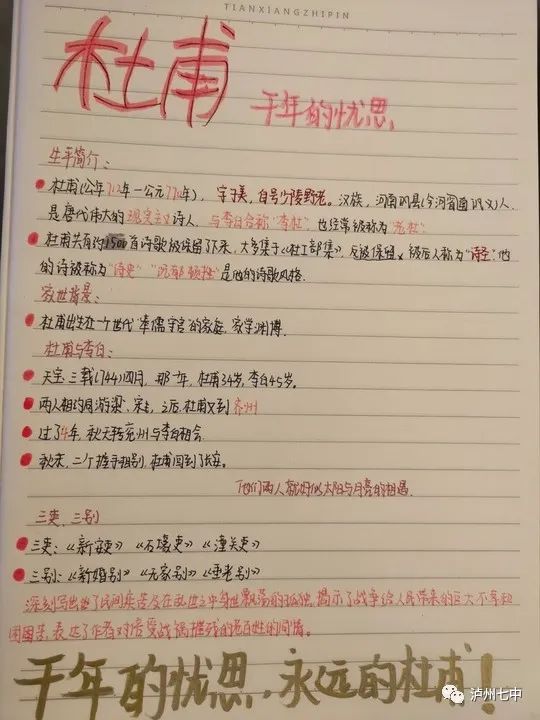 TIANXIANGZHIPIN
杜甫 千年的忧思
生平简介：
杜甫(公年712年一公元770年)，字子美，自号少陵野老。汉族，河南巩县(今河南省巩义)人，
是唐代伟大的现实主义诗人，与李白合称“李杜”。也经常被称为“老杜”
杜甫共有约1500首诗歌被保留了下来，大多集于《杜工部集》，被后人称为“诗圣”，他
的诗被称为“诗史”“沉郁顿挫”是他的诗歌风格.
家世背景：
杜甫出生在一个世代“奉儒守官”的家庭，家学渊博.
杜甫与李白：
天宝三载(744)四月，那一年，杜甫34岁，李白45岁。
两人相约同游梁、宋，之后，杜甫又到齐州
过了4年，秋天转兖州与李白相会
秋末，二个握手相别，杜甫回到了长安。
他们两人就好似太阳与月亮的相遇.
三吏、三别
三吏：《新安吏》《石壕吏》《潼关吏》
三别：《新婚别》《无家别》《垂老别》
深刻写出了民间疾苦及在乱世之中身世飘荡的孤独，揭示了战争给人民带来的巨大不幸和
困苦，表达了作者对倍受战祸摧残的老百姓的同情。
千年的忧思，永远的杜甫！
泸州七中